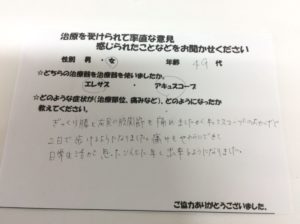 治療を受けられて率直な意見
感じられたことなどをお聞かせください
性別 男・女 年齢 49 代
☆どちらの治療器を治療器を使いましたか。
エレサス ・ アキュスコープ
☆どのような症状が(治療部位、痛みなど)、どのようになったか
教えてください。
ぎっくり腰と左足の股関節を痛めましたが、アキュスコープのおかげで
2日で歩けるようになりました。痛みもやわらいできて
日常生活が思ったように出来るようになりました。
ご協力ありがとうございました。